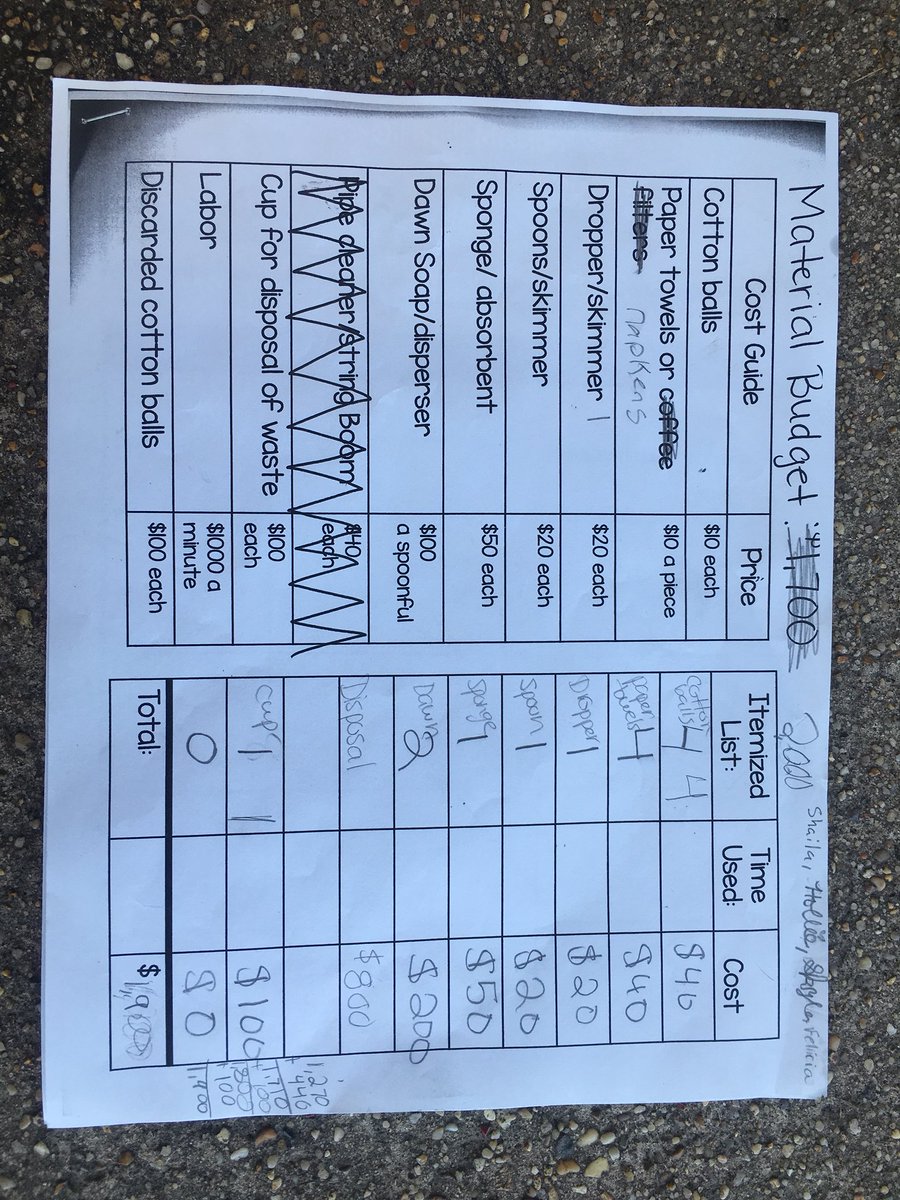 Material Budget: $1,700 2,000
Shaila, Hollie, Felicia
Cost Guide Price
Cotton balls $10 each
Paper towels or coffee
filters napkens $10 a piece
Dropper/skimmer 1 $20 each
Spoons/skimmer $20 each
Sponge/ absorbent $50 each
Dawn Soap/disperser $100
a spoonful
Pipe cleaner/String Boom $40
each
Cup for disposal of waste $100
each
Labor $1000 a
minute
Discarded cotton balls $100 each
Itemized
List:
Time
Used:
Cost
Cotton
balls 4 4 $40
paper
towels 4 $40
Dropper 1 $20
Spoon 1 $20
Sponge 1 $50
Dawn 2 $200
Disposal $800
Cup 1 1 $100
0 $0
Total: $
1,270
+ 440